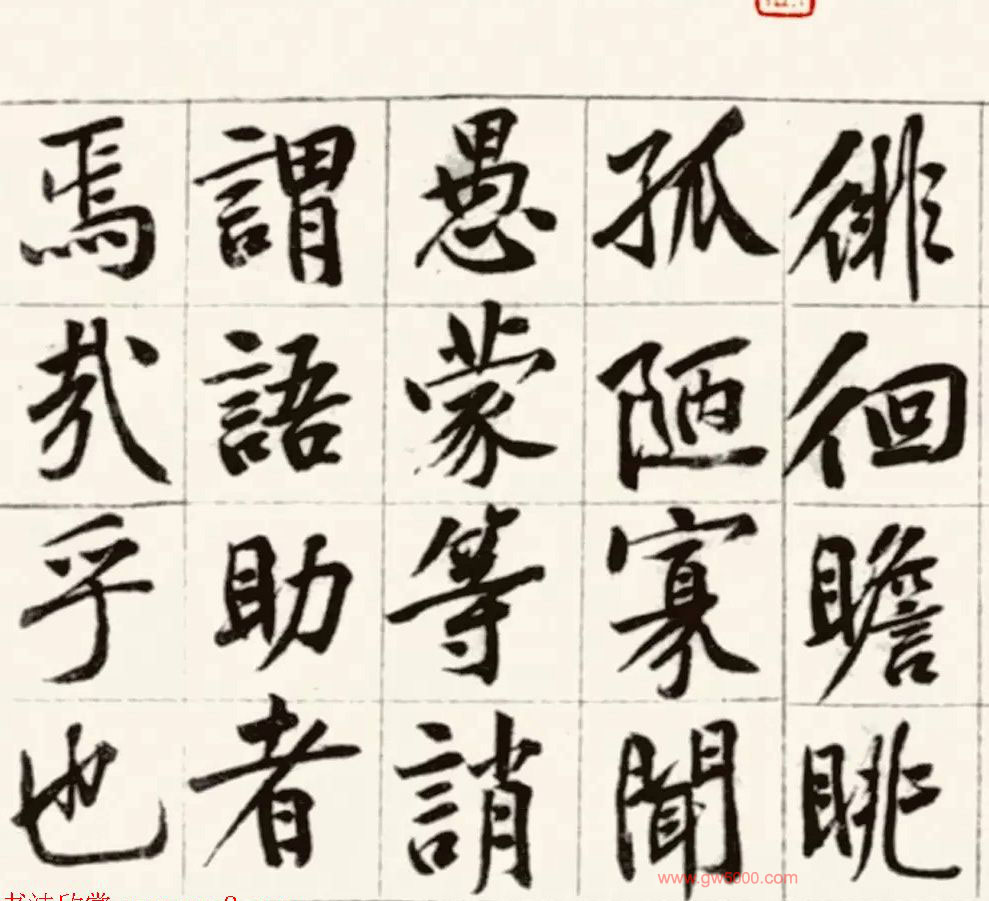 徘徊瞻眺
孤陋寡聞
愚蒙等誚
謂語助者
焉哉乎也
www.gw6000.com